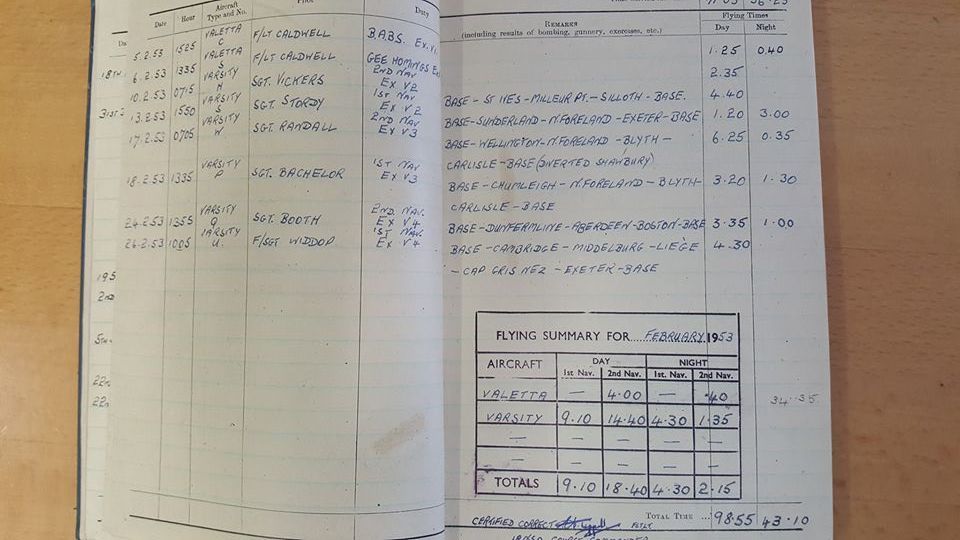 Date Hour Aircraft Type and No. Pilot Duty REMARKS (including results of bombing, gunnery, exercises, etc.) Flying Times Day Night
5.2.53 1525 VALETTA C F/LT CALDWELL B.A.B.S. 1.25 0.40
6.2.53 1335 VALETTA S F/LT CALDWELL GEE HOMINGS 2.35
10.2.53 0715 VARSITY H SGT. VICKERS 2ND NAV EX V2 BASE - ST IVES - MILLEUR PT. - SILLOTH - BASE. 4.40
13.2.53 1550 VARSITY S SGT. STORDY 1ST NAV EX V2 BASE-SUNDERLAND-N.FORELAND-EXETER-BASE 1.20 3.00
17.2.53 0705 VARSITY W SGT. RANDALL 2ND NAV EX V3 BASE-WELLINGTON-N.FORELAND-BLYTH- 6.25 0.35
CARLISLE-BASE (DIVERTED SHAWBURY)
18.2.53 1335 VARSITY P SGT. BACHELOR 1ST NAV EX V3 BASE-CHUMLEIGH-N.FORELAND-BLYTH- 3.20 1.30
CARLISLE-BASE
24.2.53 1355 VARSITY Q SGT. BOOTH 2ND. NAV. EX V4 BASE-DUNFERMLINE-ABERDEEN-BOSTON-BASE 3.35 1.00
26.2.53 1005 VARSITY U. F/SGT WIDDOP 1ST NAV. EX V4 BASE-CAMBRIDGE-MIDDELBURG-LIEGE 4.30
- CAP GRIS NEZ - EXETER-BASE
18TH
31ST
195
2ND
5TH
22
22
34.35
FLYING SUMMARY FOR FEBRUARY 1953
AIRCRAFT DAY NIGHT
1st Nav. 2nd Nav. 1st. Nav. 2nd Nav.
VALETTA — 4.00 — .40
VARSITY 9.10 14.40 4.30 1.35
— — — —
— — — —
TOTALS 9.10 18.40 4.30 2.15
TOTAL TIME ... 98.55 43.10
CERTIFIED CORRECT FLT LT